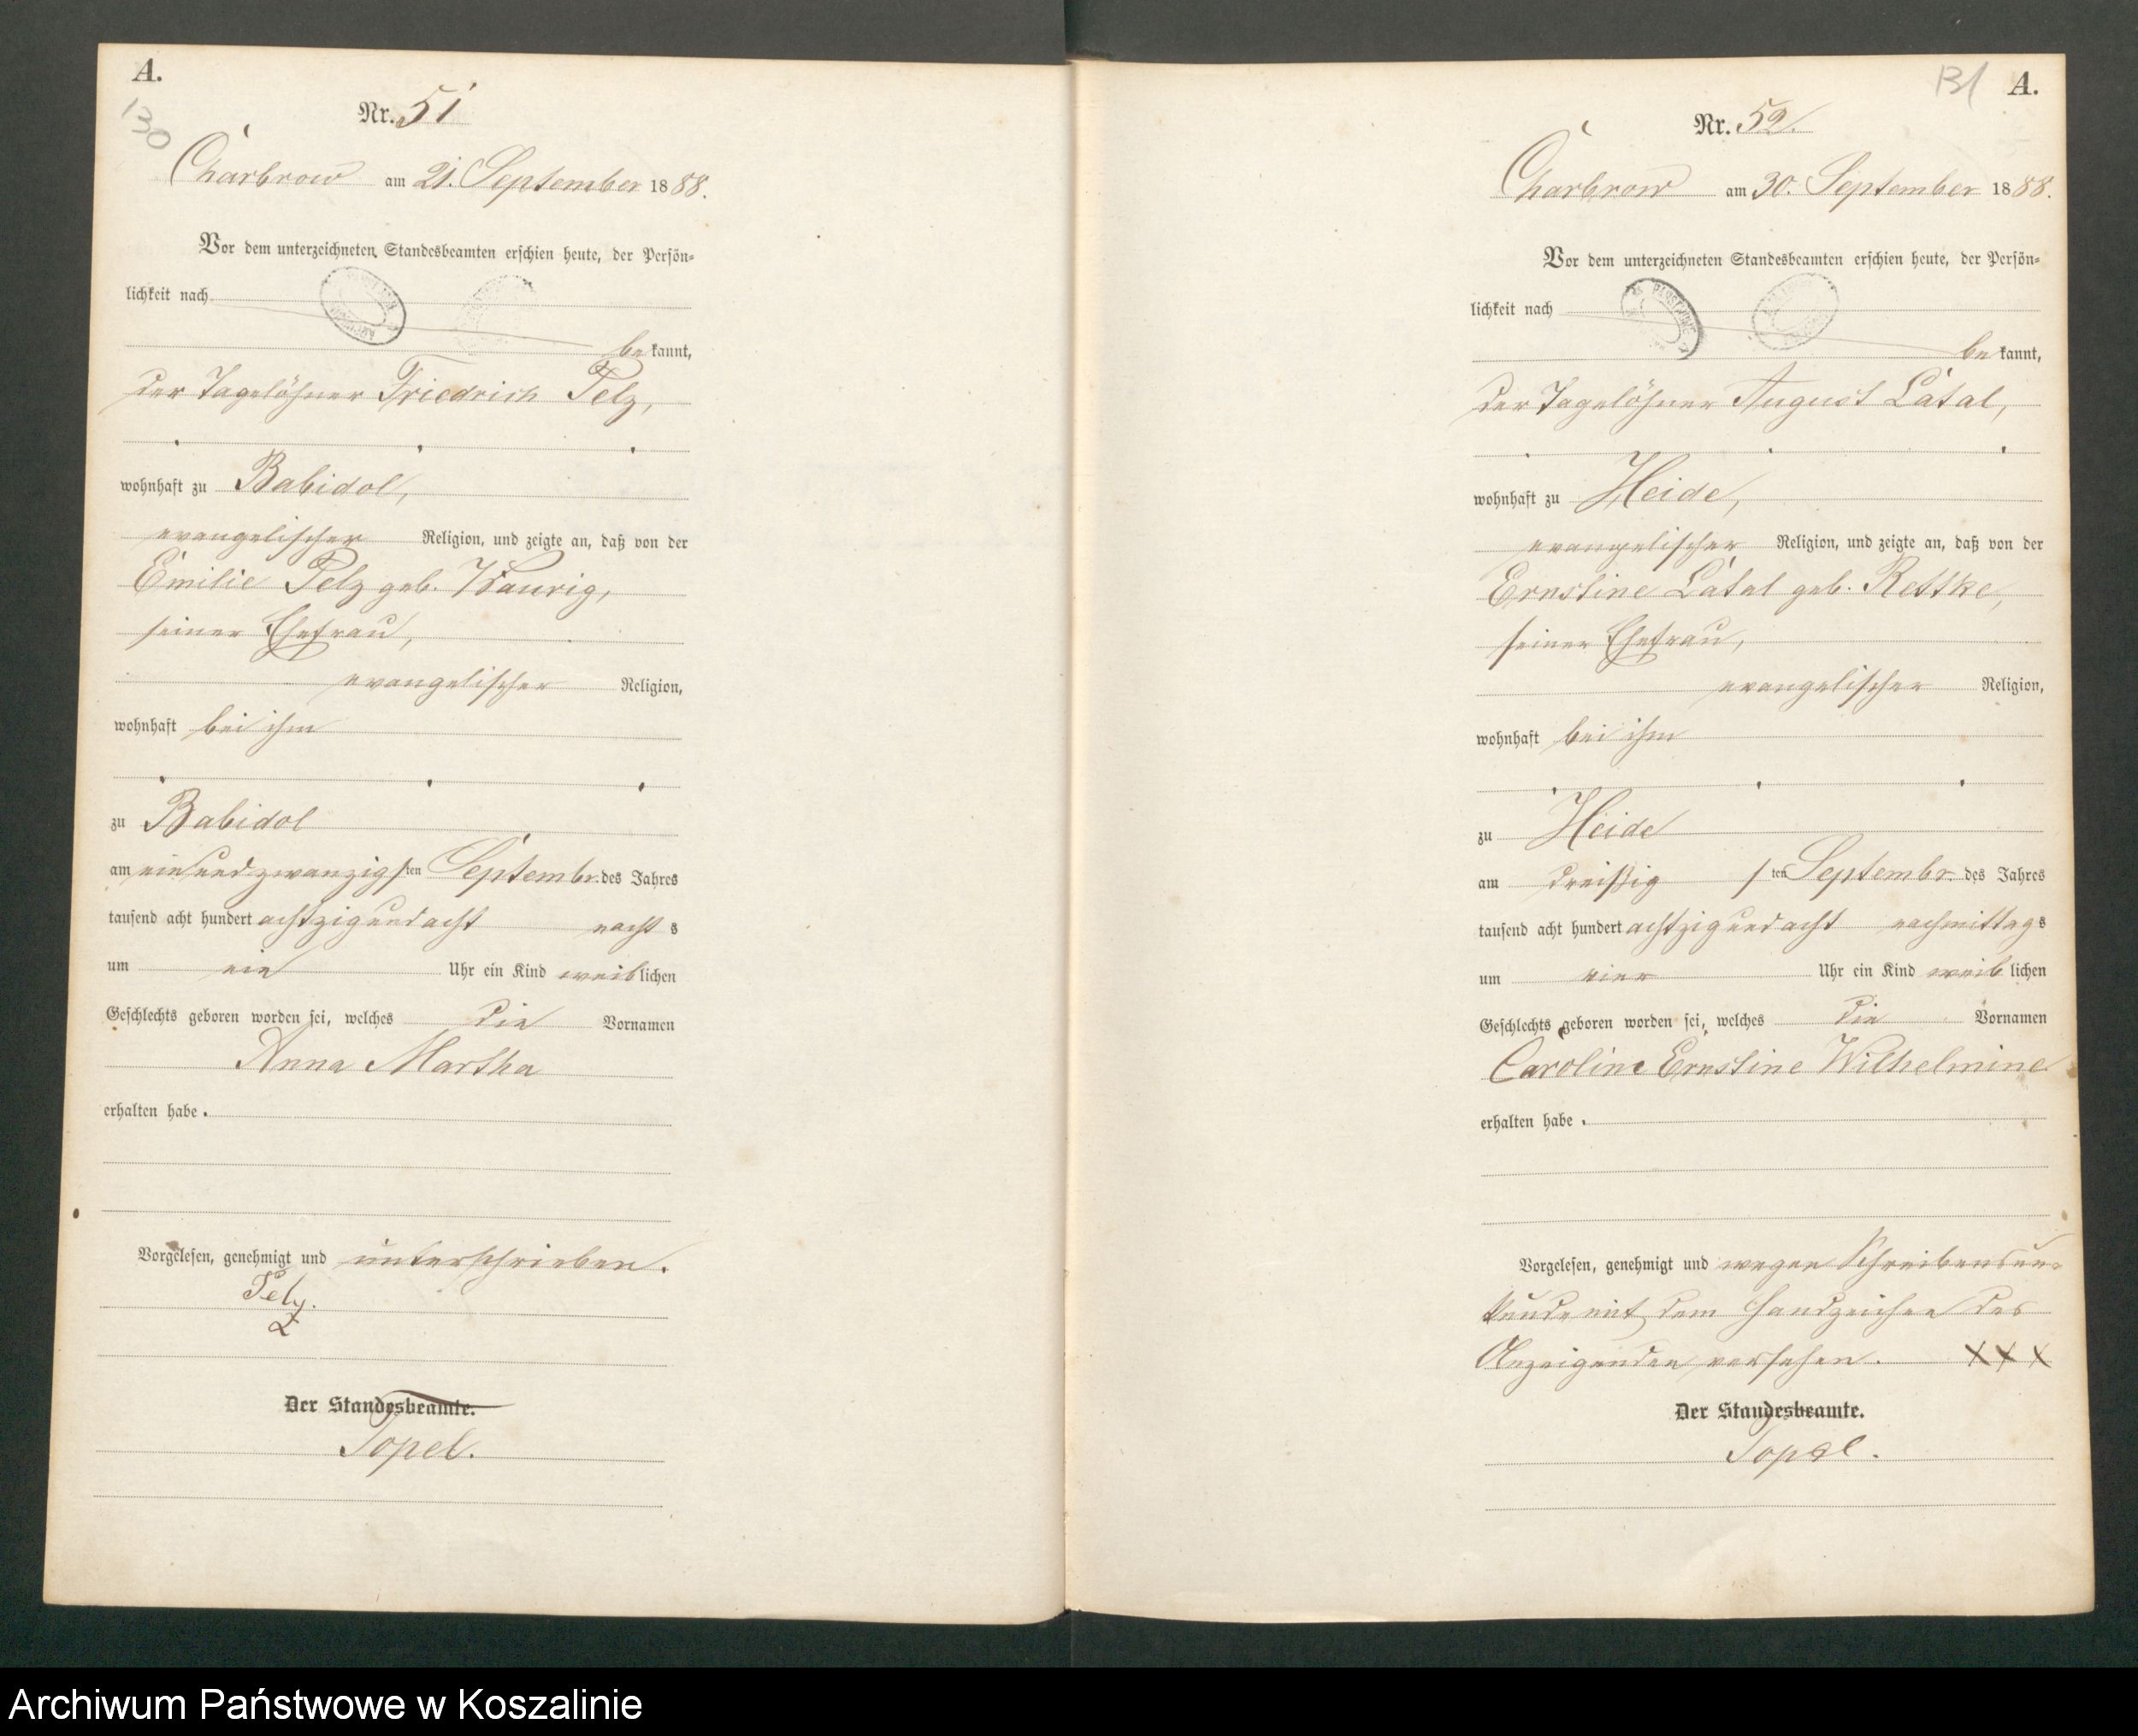 A.
130
Nr. 51
Charbrow am 21. September 1888.
Vor dem unterzeichneten Standesbeamten erschien heute, der Persön-
lichkeit nach
be kannt,
der Tagelöhner Friedrich Pelz,
wohnhaft zu Babidol,
evangelischer Religion, und zeigte an, daß von der
Emilie Pelz geb. Kaurig,
seiner Ehefrau,
evangelischer Religion,
wohnhaft bei ihm
zu Babidol
am einundzwanzigsten Septembr. des Jahres
tausend acht hundert achtzigundacht nachts
um ein Uhr ein Kind weiblichen
Geschlechts geboren worden sei, welches die Vornamen
Anna Martha
erhalten habe.
Vorgelesen, genehmigt und unterschrieben.
Pelz.
Der Standesbeamte.
Topel.
131 A.
Nr. 52.
Charbrow am 30. September 1888.
Vor dem unterzeichneten Standesbeamten erschien heute, der Persön-
lichkeit nach
be kannt,
der Tagelöhner August Latal,
wohnhaft zu Heide,
evangelischer Religion, und zeigte an, daß von der
Ernstine Latal geb. Rettke,
seiner Ehefrau,
evangelischer Religion,
wohnhaft bei ihm
zu Heide
am dreißigsten Septembr. des Jahres
tausend acht hundert achtzigundacht nachmittags
um vier Uhr ein Kind weiblichen
Geschlechts geboren worden sei, welches die Vornamen
Caroline Ernstine Wilhelmine
erhalten habe.
Vorgelesen, genehmigt und wegen Schreibensun-
kunde mit dem Handzeichen des
Anzeigenden versehen. XXX
Der Standesbeamte.
Topel.
Archiwum Państwowe w Koszalinie